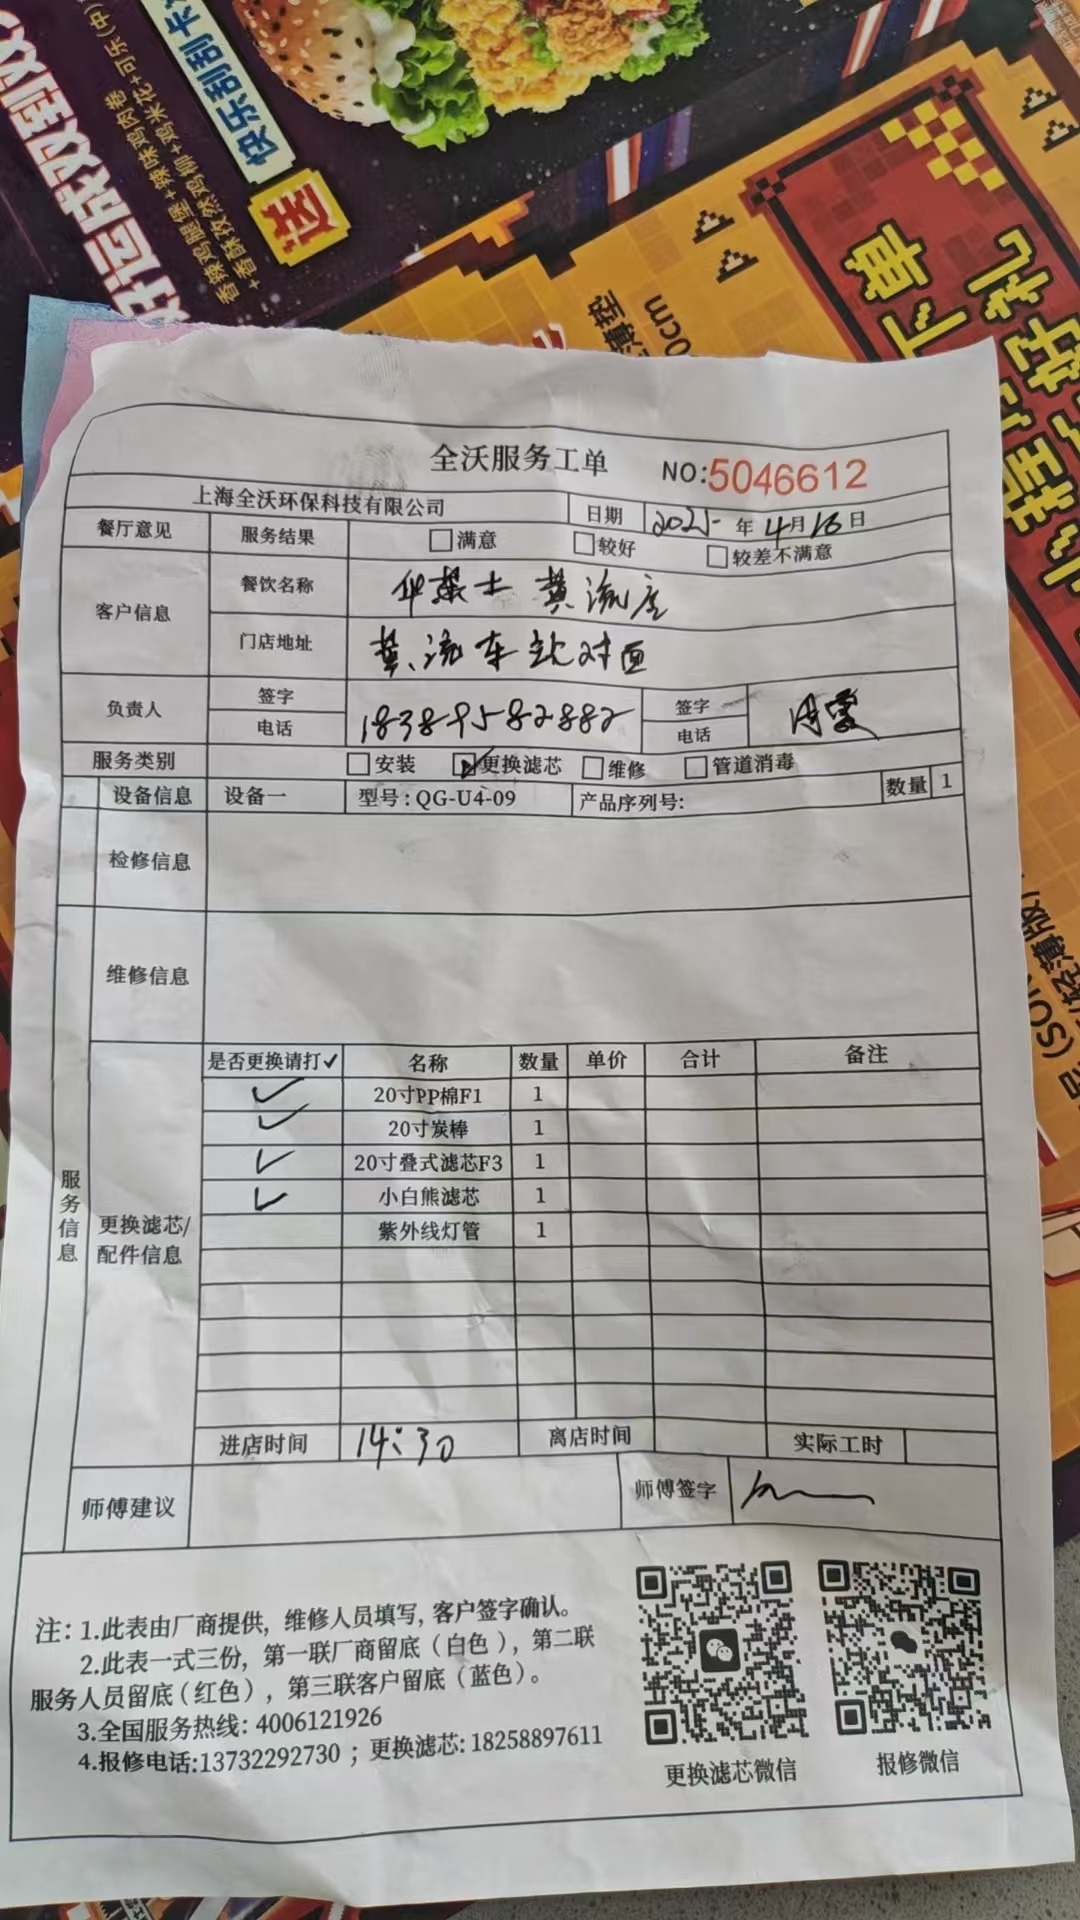 好运成双到双
香辣鸡腿堡+辣味鸡肉卷
+香酥孜然鸡柳+鸡米花+可乐(中)
快乐刮刮卡
送
全沃服务工单 NO:5046612
上海全沃环保科技有限公司 日期 2025年4月16日
餐厅意见 服务结果 满意 较好 较差不满意
客户信息 餐饮名称 华莱士 黄流店
门店地址 黄流车站对面
负责人 签字 签字
电话 18389582882 电话
服务类别 安装 更换滤芯 维修 管道消毒
设备信息 设备一 型号:QG-U4-09 产品序列号: 数量 1
检修信息
维修信息
服务信息
更换滤芯/
配件信息
是否更换请打✓ 名称 数量 单价 合计 备注
✓ 20寸PP棉F1 1
✓ 20寸炭棒 1
✓ 20寸叠式滤芯F3 1
✓ 小白熊滤芯 1
紫外线灯管 1
进店时间 14:30 离店时间 实际工时
师傅建议 师傅签字
注: 1.此表由厂商提供, 维修人员填写, 客户签字确认。
2.此表一式三份, 第一联厂商留底(白色), 第二联
服务人员留底(红色), 第三联客户留底(蓝色)。
3.全国服务热线: 4006121926
4.报修电话:13732292730 ; 更换滤芯: 18258897611
更换滤芯微信 报修微信